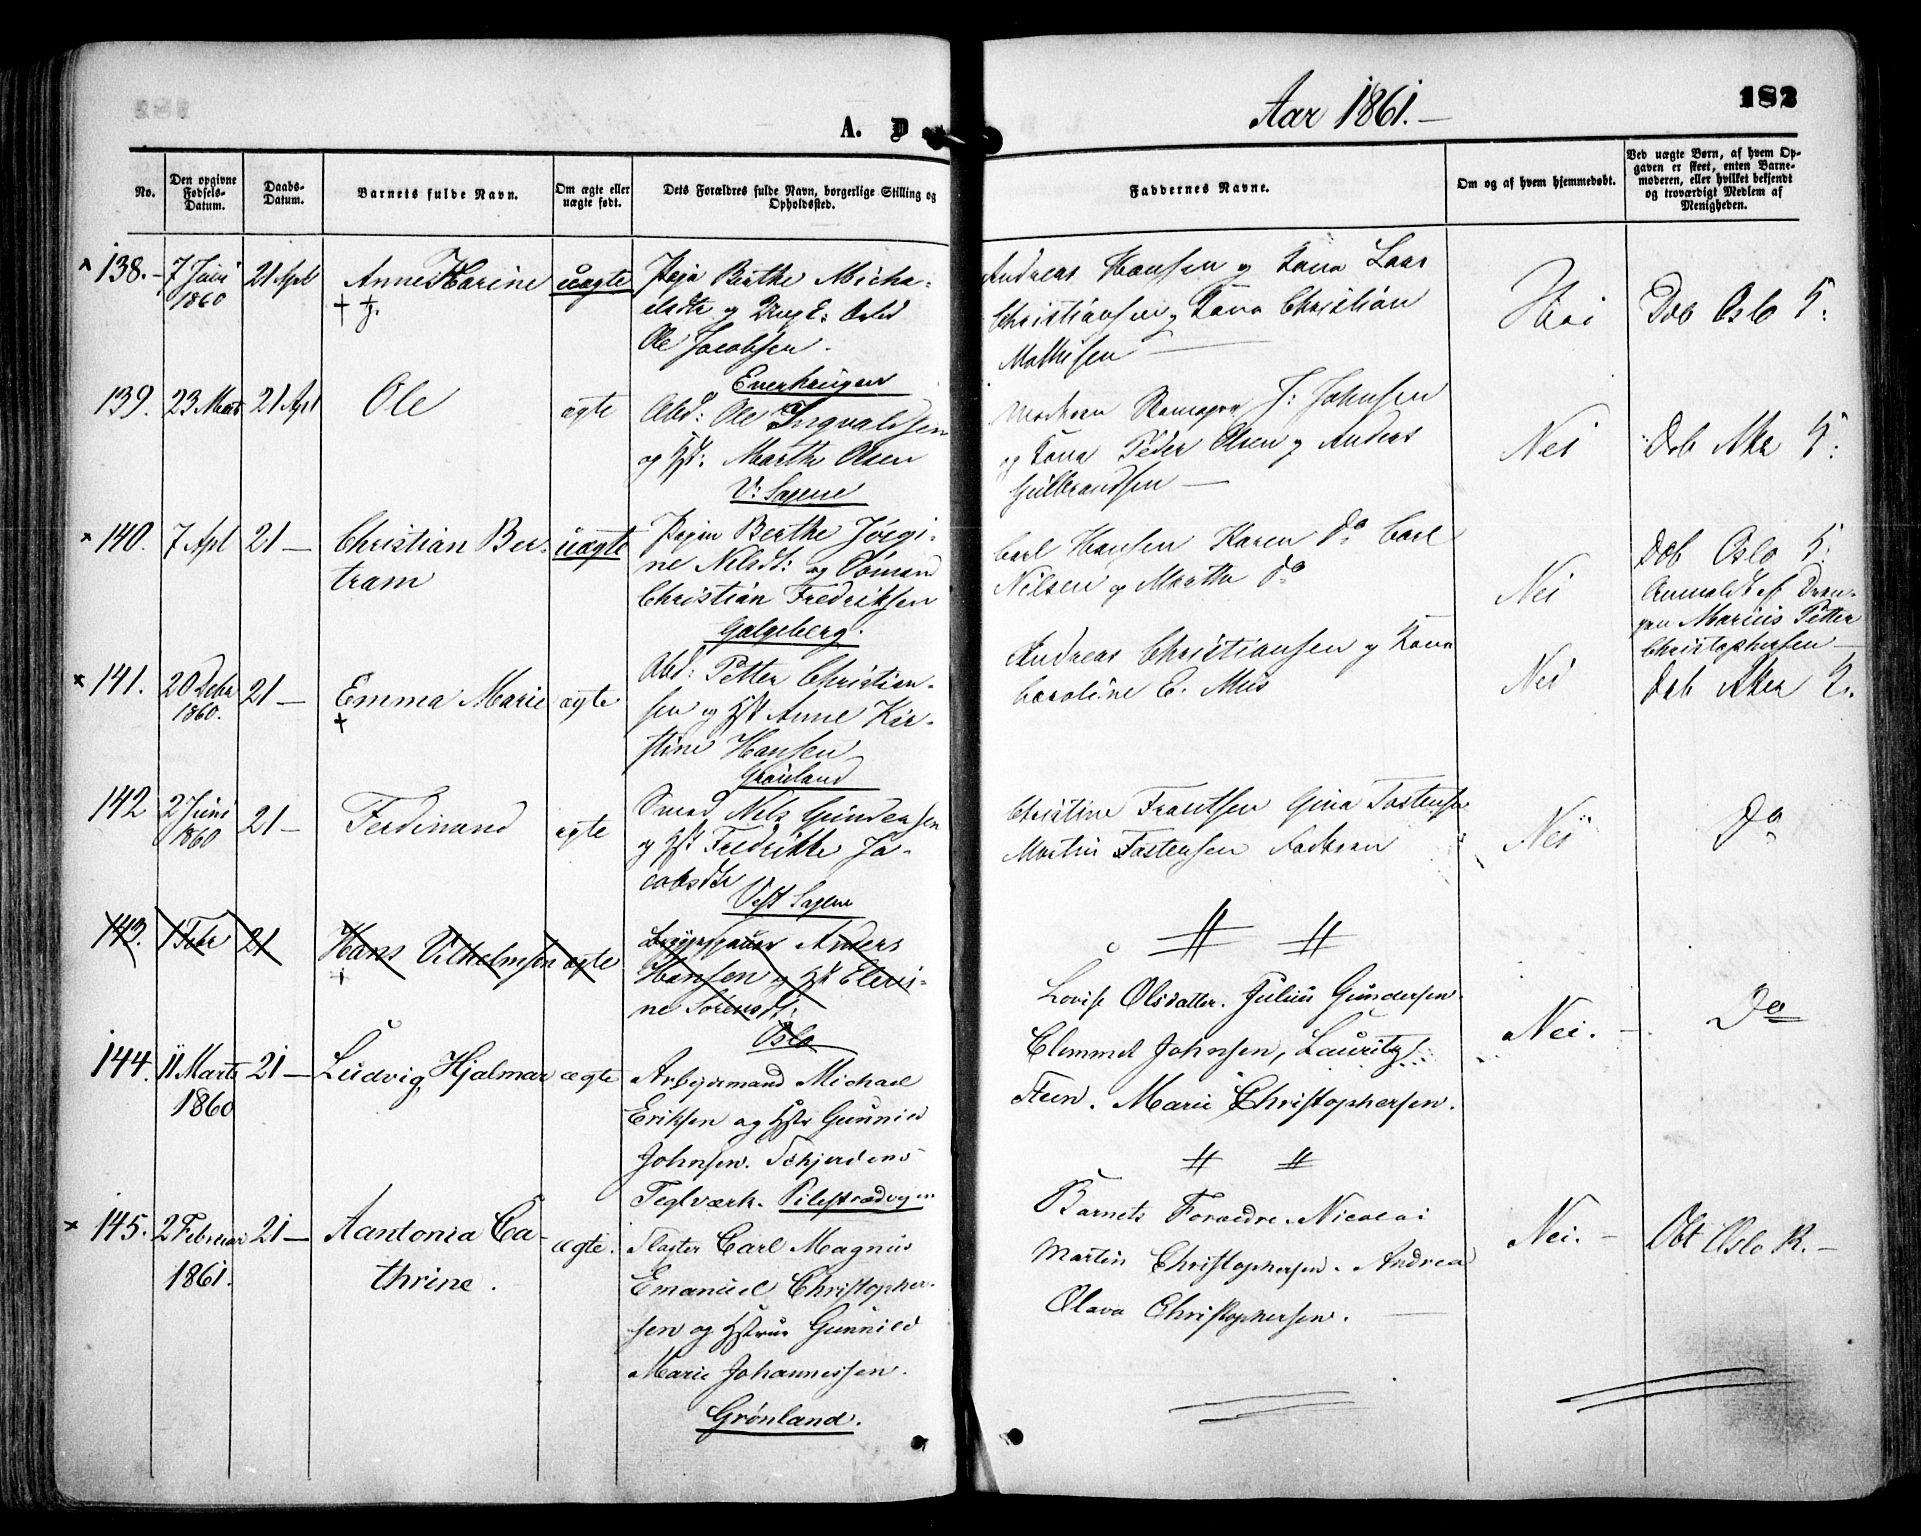 Aar 1861.
182
A. D
No.
Den opgivne Fødsels-Datum.
Daabs-Datum.
Barnets fulde Navn.
Om ægte eller uægte født.
Dets Forældres fulde Navn, borgerlige Stilling og Opholdssted.
Faddernes Navne.
Om og af hvem hjemmedøbt.
Ved uægte Børn, af hvem Opgaven er skeet, enten Barnemoderen, eller hvilket bekjendt og troværdigt Medlem af Menigheden.
138. 7 Juni 1860 21 Apl Anne Karine uægte
Pige Berthe Micha-
elsdtr og Ung K:
Ole Jacobsen.
Enerhaugen
Andreas Hansen og Kona Lars
Christiansen og Kona Christian
Mathisen
Nei
Døb Oslo K:
139. 23 Marts 21 Apl Ole ægte
Arbd: Ole Ingvaldsen
og Hst: Marthe Olsen
V: Sagene
Moderen J: Johnsen
og Kona Peder Olsen og Anders
Gulbrandsen
Nei
Døb Aker K:
140. 7 Apl 21 Christian Ber-
tram
uægte
Pigen Berthe Jørgi-
ne Nilsdt: og Sømand
Christian Fredriksen
Galgeberg.
Carl Hansen Karen Do Carl
Nilsen og Marthe Do
Nei
Døb Oslo K:
Anmeldt af Dren-
gen Marius Petter
Christophersen
141. 20 Debr 1860. 21 Emma Marie ægte
Arbd: Petter Christian-
sen og Hst Anne Kir-
stine Hansen
Grønland
Andreas Christiansen og Kona
Caroline E. Mus
Nei
Døb Aker K.
142 2 Juni 1860 21 Ferdinand ægte
Smed Nels Gundersen
og Hst Fredrikke Ja-
cobsdtr
Vest Sagene
Christine Frantsen Gina Tostensen
Martin Tostensen Faderen
Nei
Do
143. 1 Febr 21 Hans Vilhelmsen ægte
Anders
Hansen og Hst Eleri-
ne Sørensdt:
Oslo
144. 11 Marts 1860 21 Ludvig Hjalmar ægte
Arbeidsmand Michael
Eriksen og Hstr Gunnild
Johnsen. Schjerdens
Teglværk. Pilestrædvejen
Lovise Olsdatter. Julius Gundersen.
Clemmet Johnsen, Lauritz
Steen. Marie Christophersen.
Nei.
Do
145. 2 Februar 1861. 21 Aantonia Ca-
thrine.
ægte.
Slagter Carl Magnus
Emanuel Christopher-
sen og Hstru Gunnild
Marie Johannessen.
Grønland.
Barnets Forældre. Nicolai
Martin Christophersen. Andrea
Olava Christophersen.
Nei.
Døbt Oslo K.